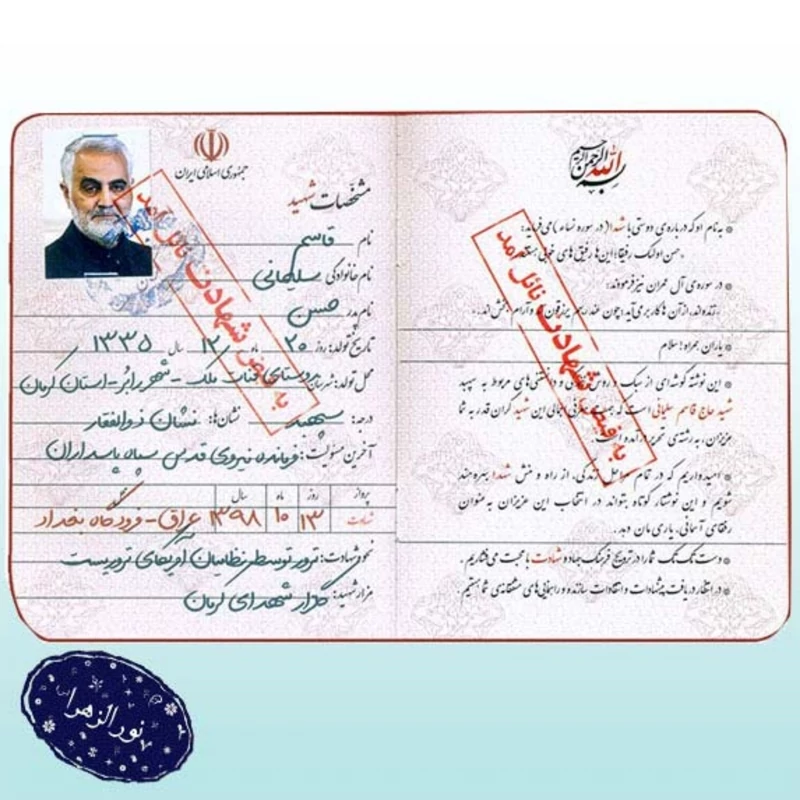 بسم الله الرحمن الرحیم
به نام او که درباره‌ی دوستی با شهدا (در سوره نساء) می‌فرماید:
حسن اولئک رفیقا؛ این‌ها رفیق‌های خوبی هستند
در سوره‌ی آل عمران نیز فرمودند:
زنده‌اند، از آن‌ها کار بر می‌آید؛ چون عند ربهم یرزقون‌اند و آرام بخش‌اند.
یاران همراه! سلام
این نوشته گوشه‌ای از سبک و روش زندگی و دانستنی‌های مربوط به سپهبد
شهید حاج قاسم سلیمانی است که جهت معرفی اجمالی این شهید گران قدر به شما
عزیزان، به رشته‌ی تحریر درآمده است.
امیدواریم که در تمام مراحل زندگی، از راه و منش شهدا بهره‌مند
شویم و این نوشتار کوتاه بتواند در انتخاب این عزیزان به عنوان
رفقای آسمانی، یاری مان دهد.
دست تک تک شما را در ترویج فرهنگ جهاد و شهادت با محبت می‌فشاریم.
در انتظار دریافت پیشنهادات و انتقادات سازنده و راهنمایی‌های مشفقانه‌ی شما هستیم
به فیض شهادت نائل آمد
جمهوری اسلامی ایران
مشخصات شهید
نام قاسم
نام خانوادگی سلیمانی
نام پدر حسن
تاریخ تولد: روز ۲۰ ماه ۱۲ سال ۱۳۳۵
محل تولد: شهرستان روستای قنات ملک - شهر رابر - استان کرمان
درجه: سپهبد نشان‌ها: نشان ذوالفقار
آخرین مسئولیت: فرمانده نیروی قدس سپاه پاسداران
پرواز روز ماه سال
شهادت ۱۳ ۱۰ ۱۳۹۸ عراق - فرودگاه بغداد
نحوه شهادت: ترور توسط نظامیان آمریکای تروریست
مزار شهید: گلزار شهدای کرمان
به فیض شهادت نائل آمد
نورالزهرا